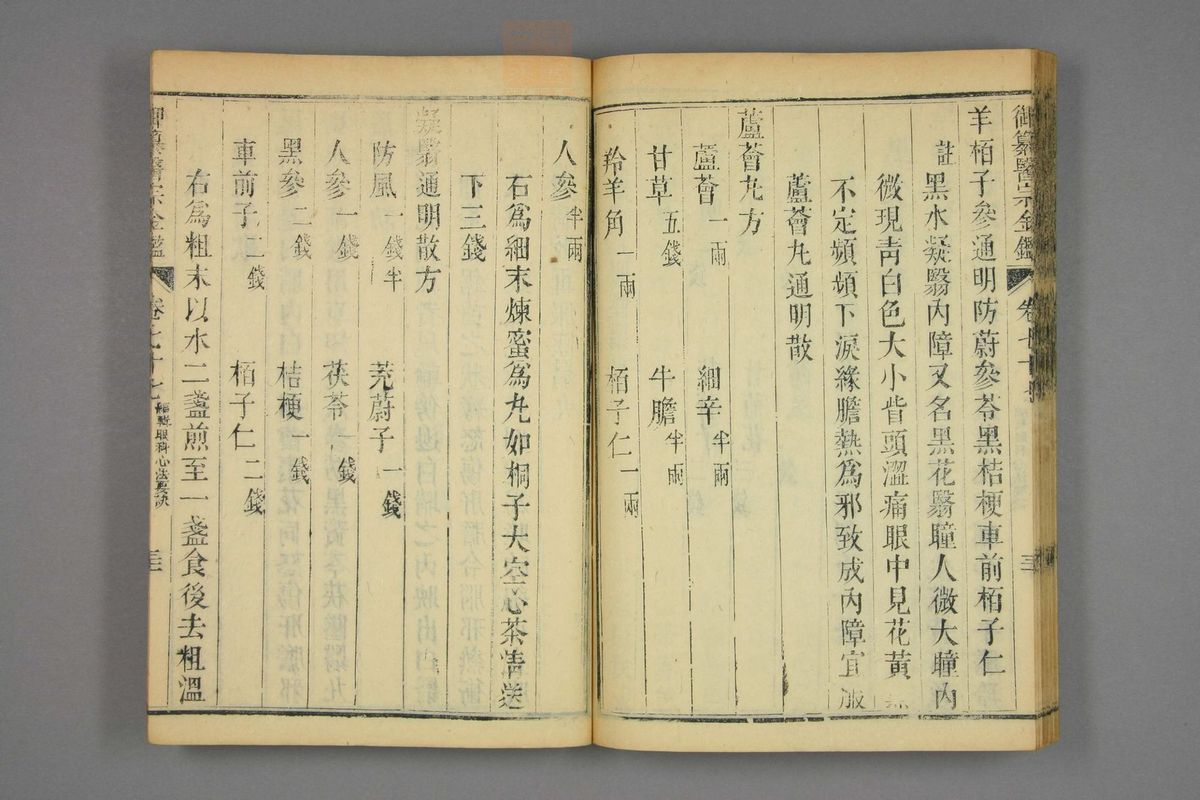 御纂醫宗金鑑 卷七十七
羊栢子參通明防蔚參苓黑桔梗車前栢子仁
註黑水凝翳內障又名黑花翳瞳人微大瞳內
微現靑白色大小眥頭澀痛眼中見花黃黑
不定頻頻下淚緣膽熱爲邪致成內障宜服
蘆薈丸通明散
蘆薈丸方
蘆薈一兩 細辛半兩
甘草五錢 牛膽半兩
羚羊角一兩 栢子仁一兩
人參半兩
右爲細末煉蜜爲丸如桐子大空心茶清送
下三錢
凝翳通明散方
防風一錢半 茺蔚子一錢
人參一錢 茯苓一錢
黑參二錢 桔梗一錢
車前子二錢 栢子仁二錢
右爲粗末以水二盞煎至一盞食後去粗溫
御纂醫宗金鑑 卷七十七 編輯眼科心法要訣